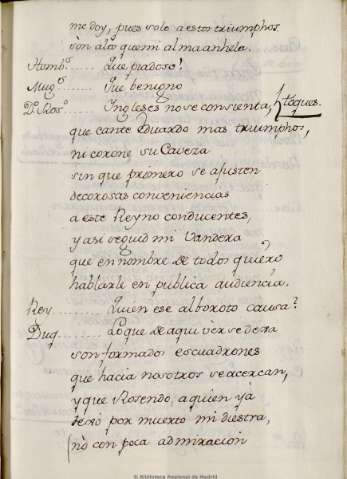 me doy, pues solo a estos triumphos
son a los que mi alma anhela.
Homb.s ...... Que piadoso!
Mug.s ...... Que benigno
D.n Ros.o ...... Ingleses no se consienta, Toques.
que cante Eduardo mas triumphos,
ni corone su Caveza
sin que primero se ajusten
decorosas conveniencias
a este Reyno conducentes,
y asi seguid mi Vandera
que en nombre de todos quiero
hablarle en publica audiencia.
Rey ........ Quien ese alboroto causa?
Duq. ....... Lo que de aqui ver se dexa
son formados escuadrones
que hacia nosotros se acercan,
y que Rosendo, a quien yà
dexò por muerto mi diestra,
no con poca admiracion
© Biblioteca Regional de Madrid